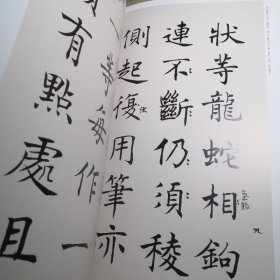 狀等龍蛇相鉤
連不斷仍須稜
側起復用筆亦
等每作一
有點處且